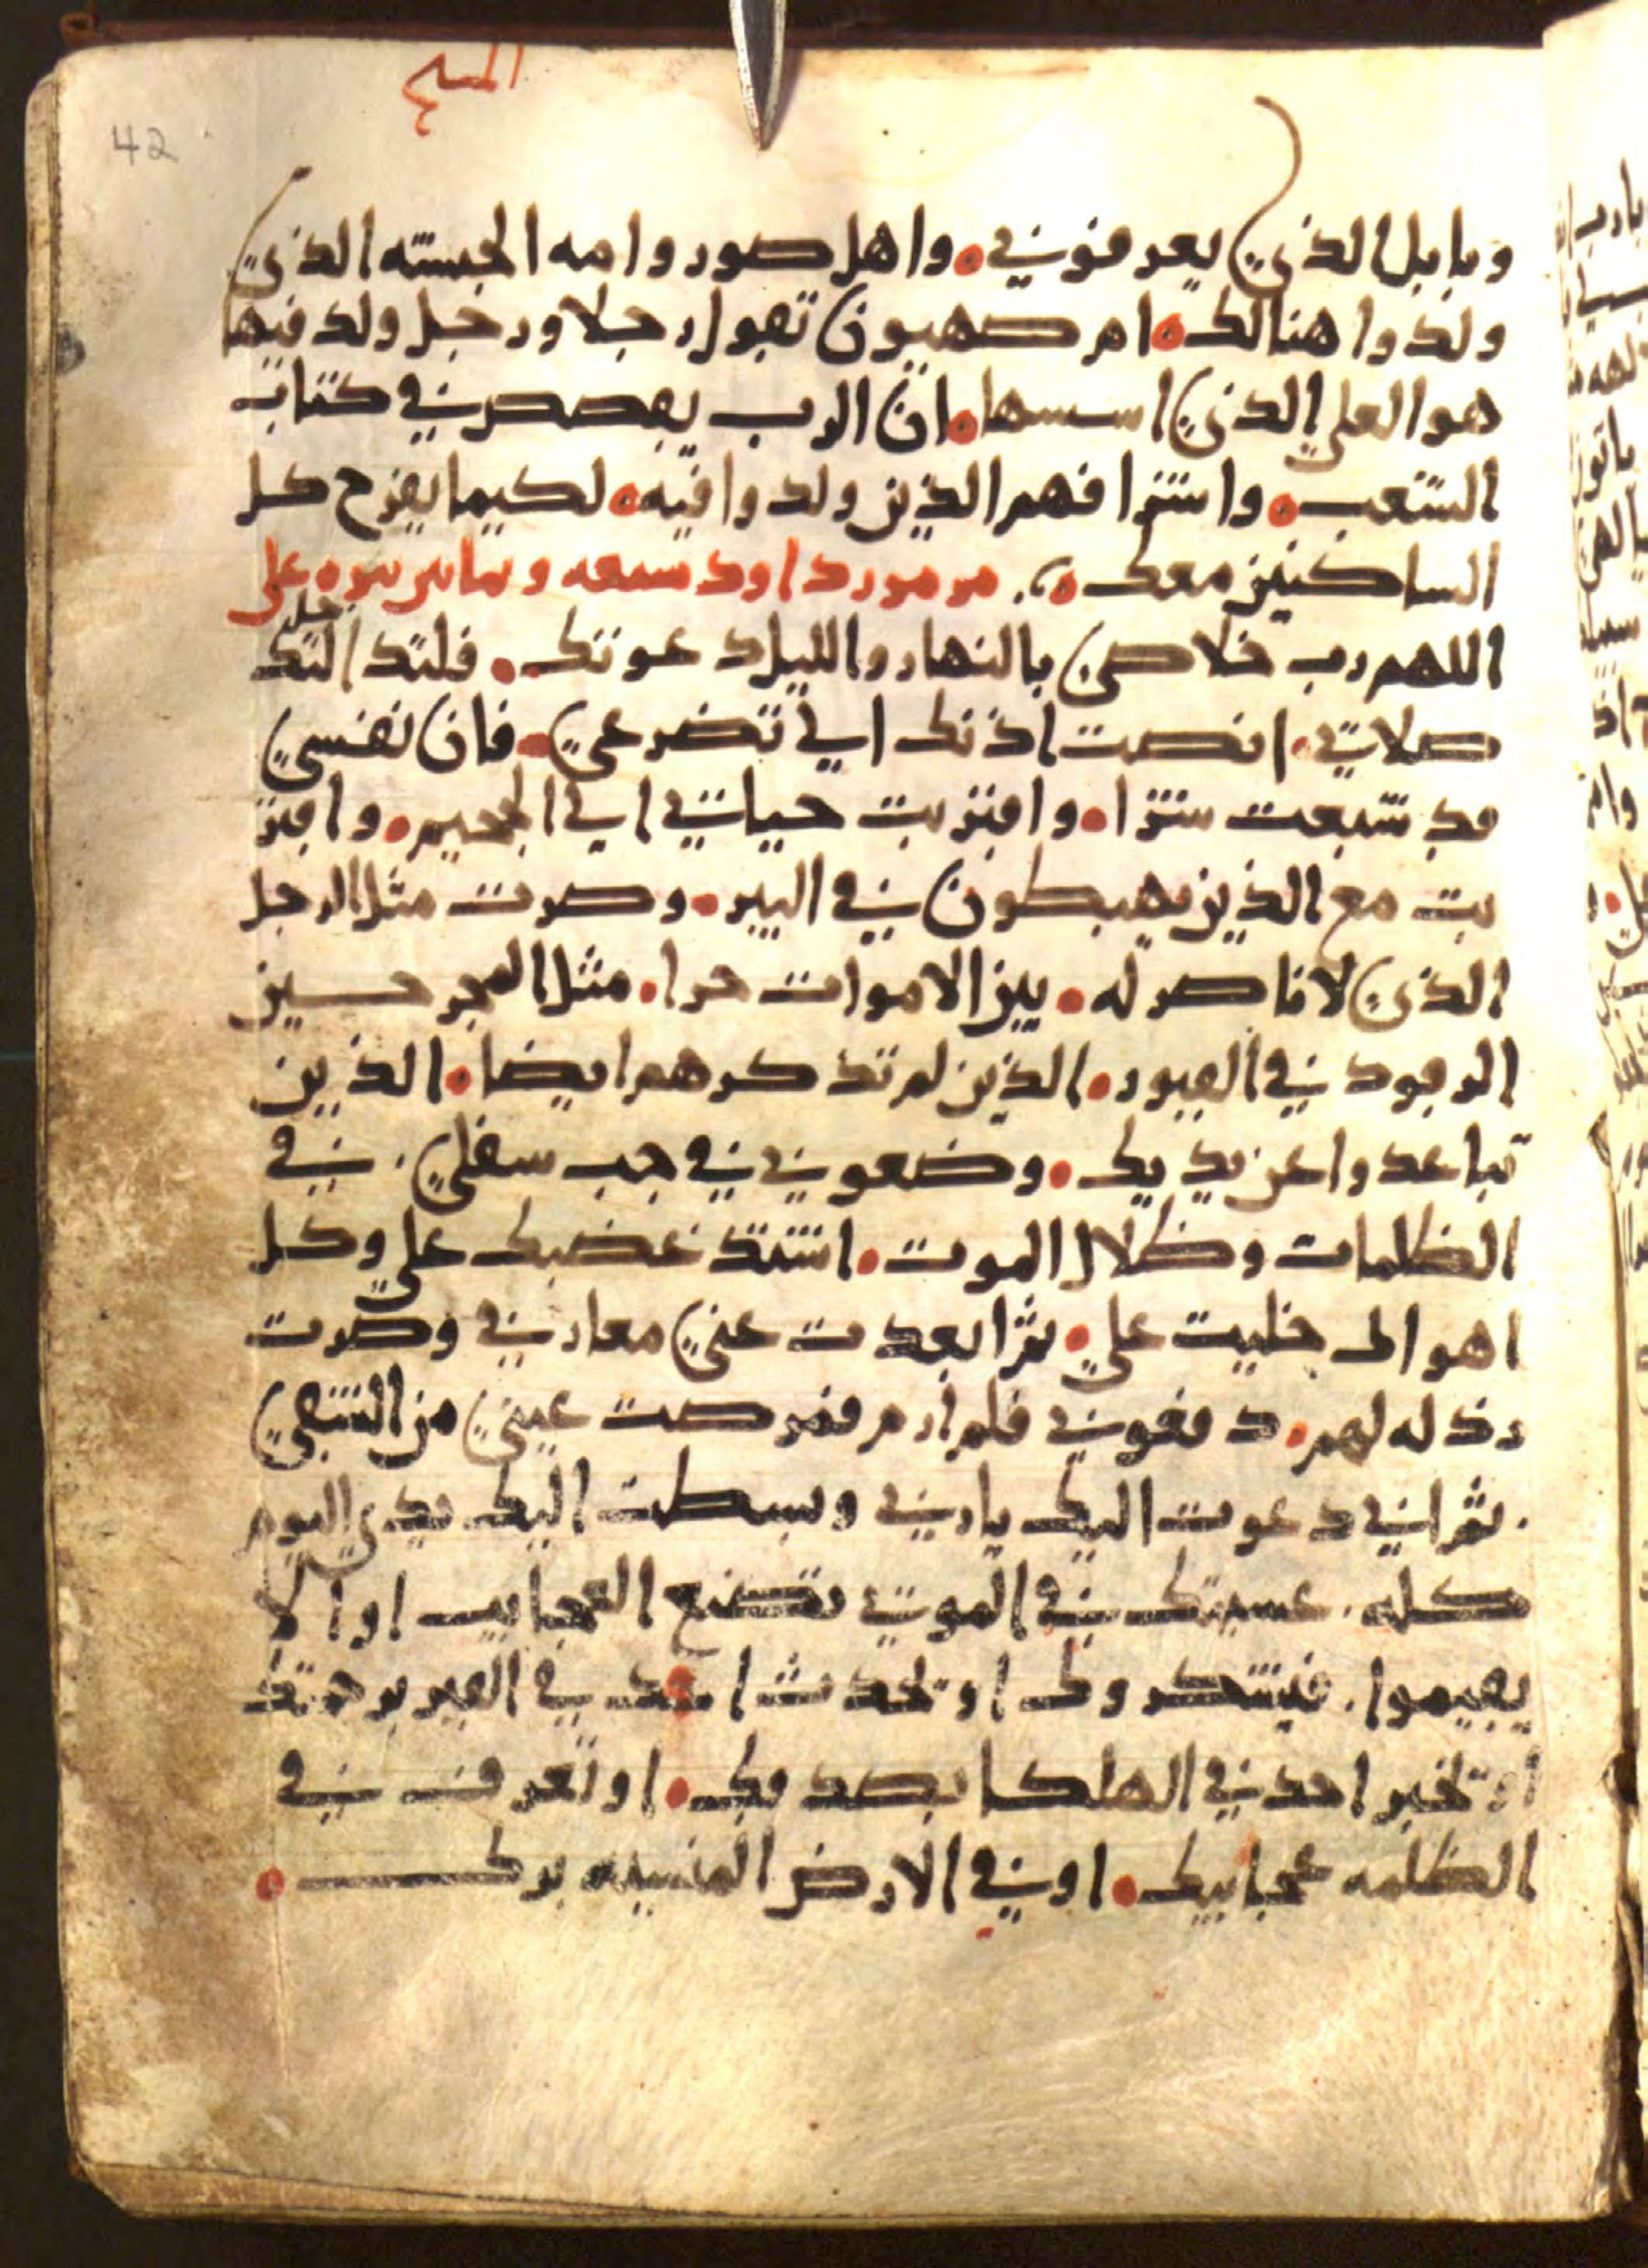 المسيح
42
وبابل الذي يعرفوني. واهل صور وامه الحبشه الذي
ولدوا هنالك. ام صهيون تقول رجلا ورجل ولد فيها
هو العلي الذي اسسها. ان الرب يقصص في كتاب
الشعب. واشرافهم الذين ولدوا فيه. لكيما يفرح كل
الساكنين معك. مزمور داود سبعه وثمانين على
اللهم رب خلاصي بالنهار والليل دعوتك. فلتدخل اليك
صلاتي. انصت اذنك الي تضرعي. فان نفسي
قد شبعت شرا. واقتربت حياتي الي الجحيم. واقتر
بت مع الذين يهبطون في البير. وصرت مثل الرجل
الذي لا ناصر له. بين الاموات حرا. مثل المجرحين
الرقود في القبور. الذين لم تذكرهم ايضا. الذين
تباعدوا عن يديك. وضعوني في جب سفلي. في
الظلمات وظلال الموت. اشتد غضبك علي وكل
اهوالك جلبت علي. ثم ابعدت عني معارفي وصرت
رذله لهم. دفعوني فلم ارم فمرصت عيني من الشقي
. ثم اني دعوت اليك يارب وبسطت اليك يدي اليوم
كله. عسيتك في الموتي تصنع العجايب او الا
يقيموا. فيشكروك او تحدث احد في القبر برحمتك
او تخبر احد في الهلكا بصدقك. او تعرف في
الظلمه عجايبك. او في الارض المنسيه برك.